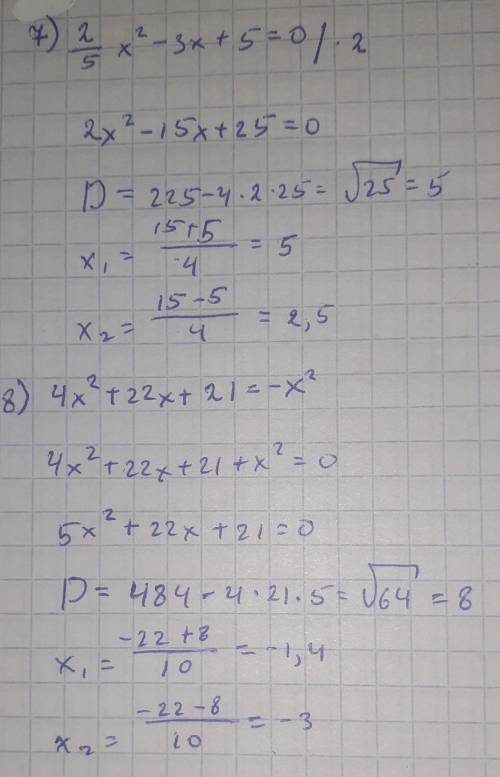 7) 2/5 x² - 3x + 5 = 0 / · 2
2x² - 15x + 25 = 0
D = 225 - 4 · 2 · 25 = √25 = 5
x₁ = (15+5)/4 = 5
x₂ = (15-5)/4 = 2,5
8) 4x² + 22x + 21 = -x²
4x² + 22x + 21 + x² = 0
5x² + 22x + 21 = 0
D = 484 - 4 · 21 · 5 = √64 = 8
x₁ = (-22+8)/10 = -1,4
x₂ = (-22-8)/10 = -3